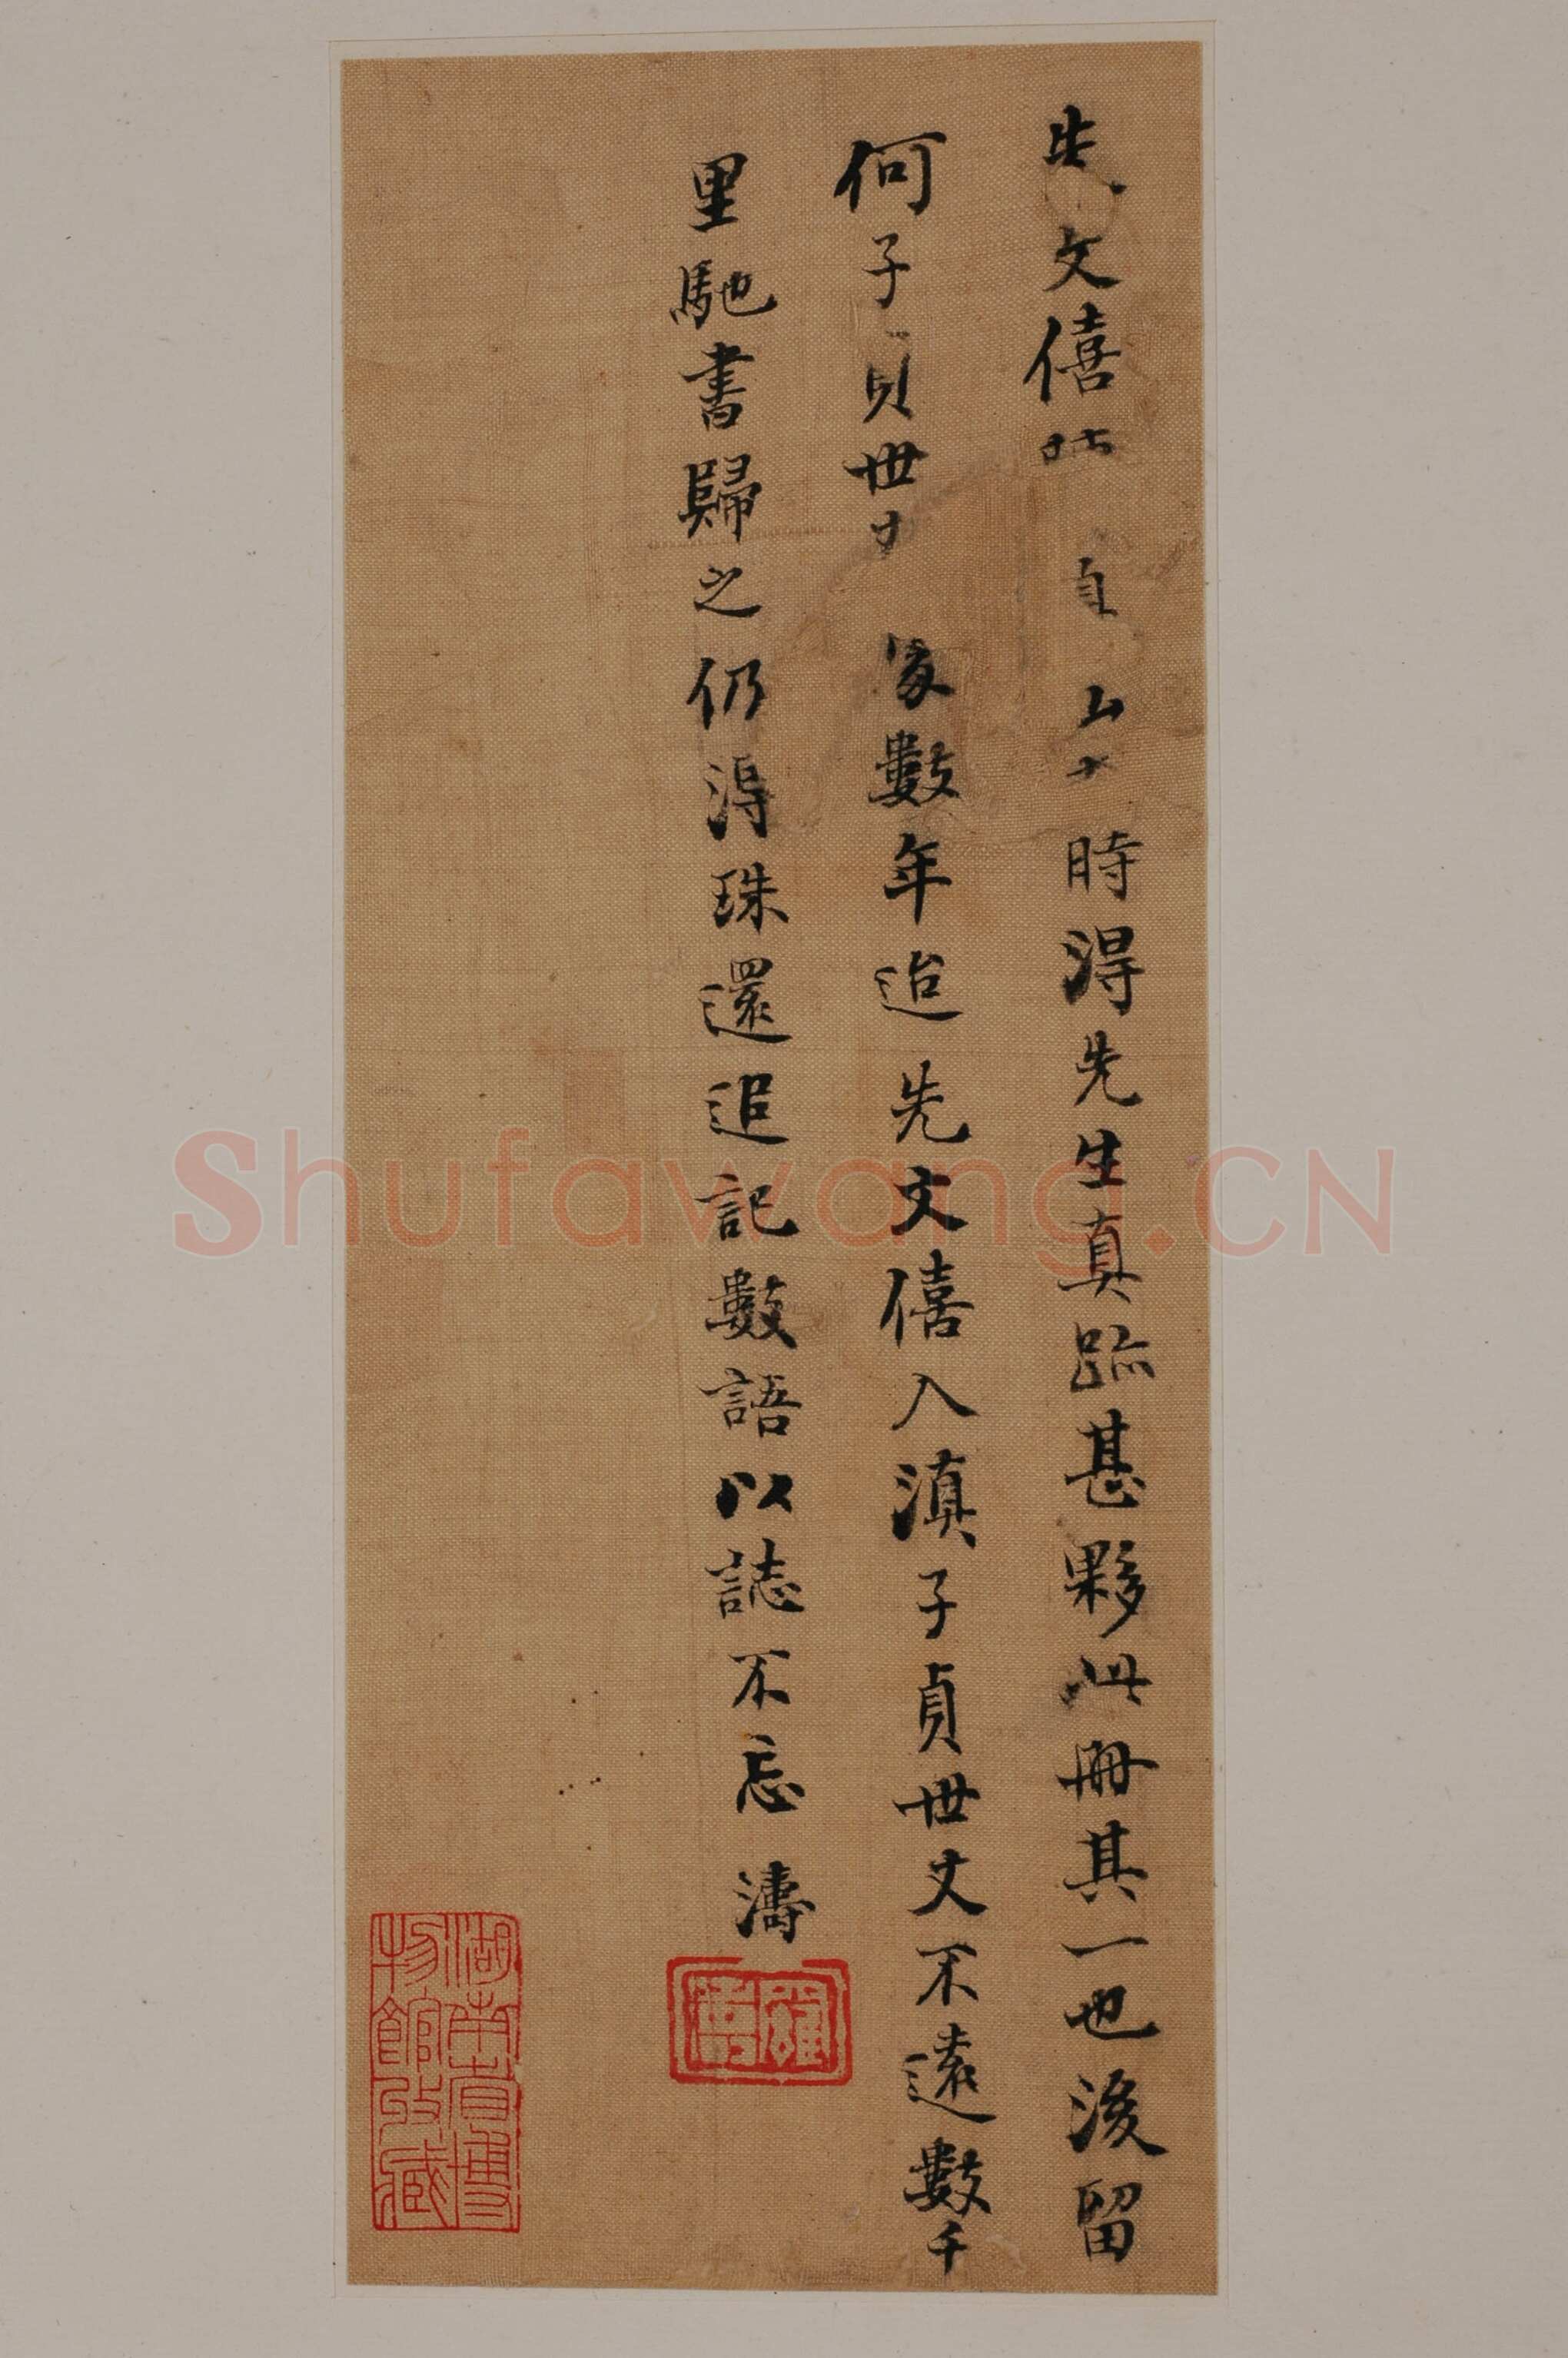 先文僖 時得先生真跡甚夥此冊其一也後留
何子貞世 家數年迨先文僖入滇子貞世丈不遠數千
里馳書歸之仍得珠還追記數語以誌不忘 濤
湖南省博
物館收藏
Shufawang.CN